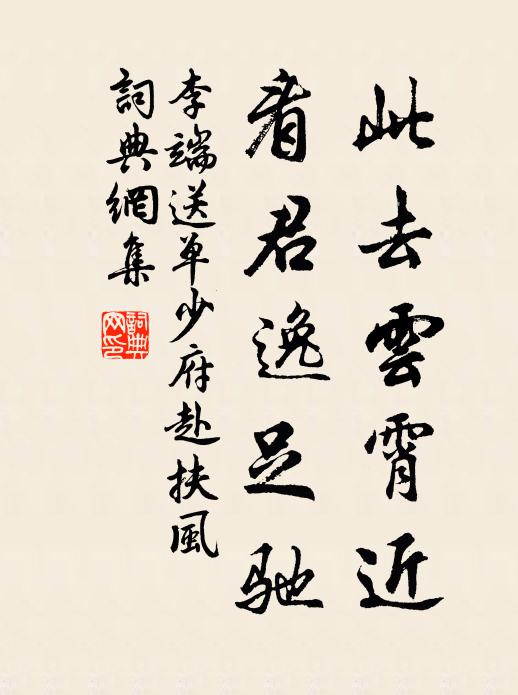 此去雲霄近
看君逸足馳
李端送单少府赴扶風
詞典網集
詞典网印